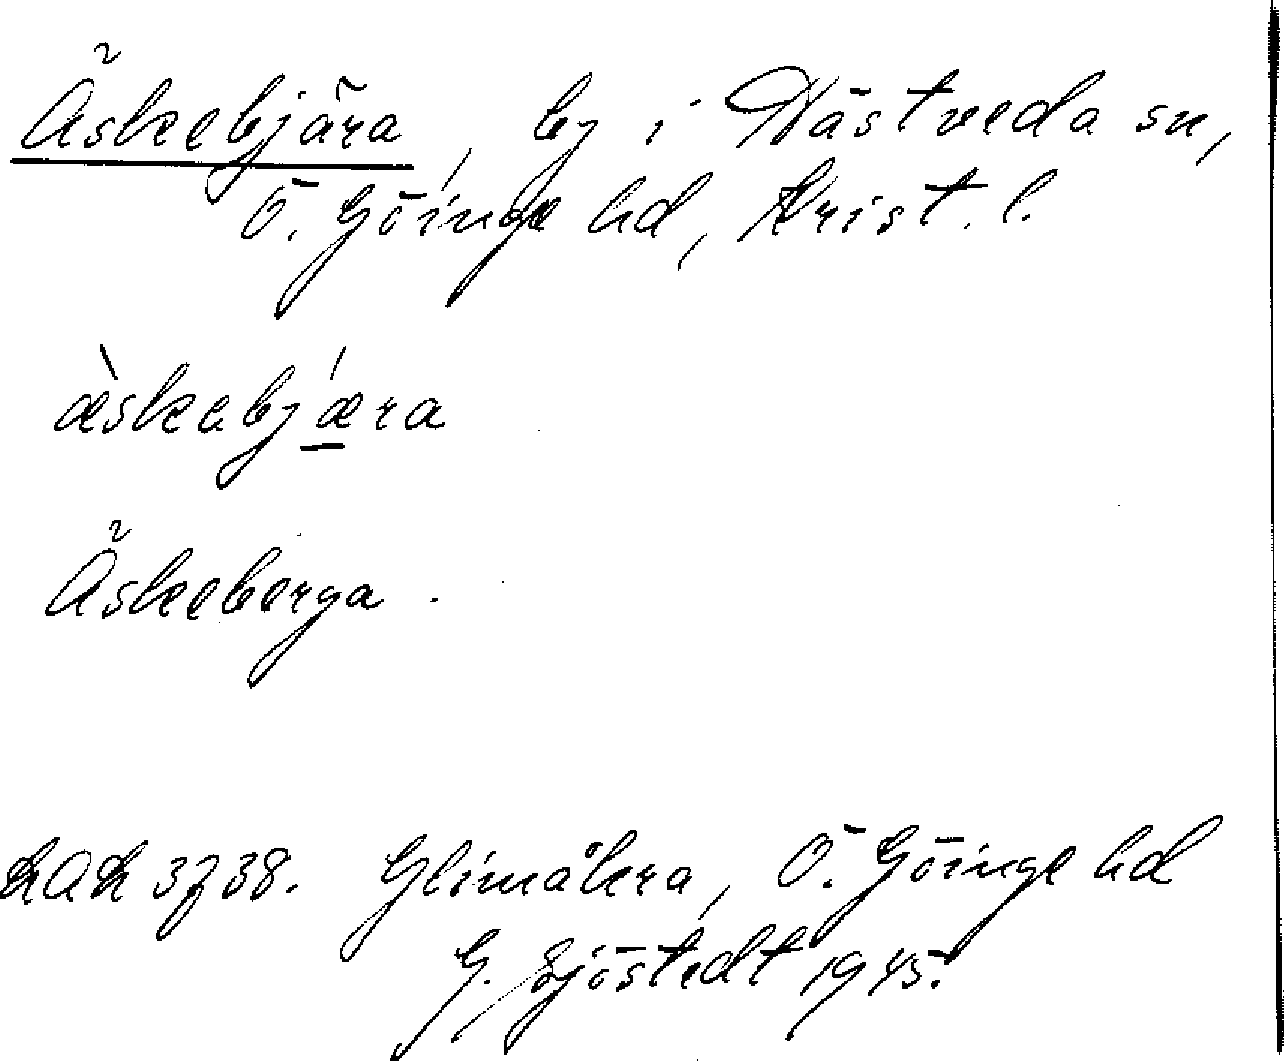 Äskebjära, by i Västveda sn,
Ö. Göinge hd, Krist. l.
ä̀skebjǽra
Äskeberga.
RAÄ 3738. Glimåkra, Ö. Göinge hd
G. Sjöstedt 1945.